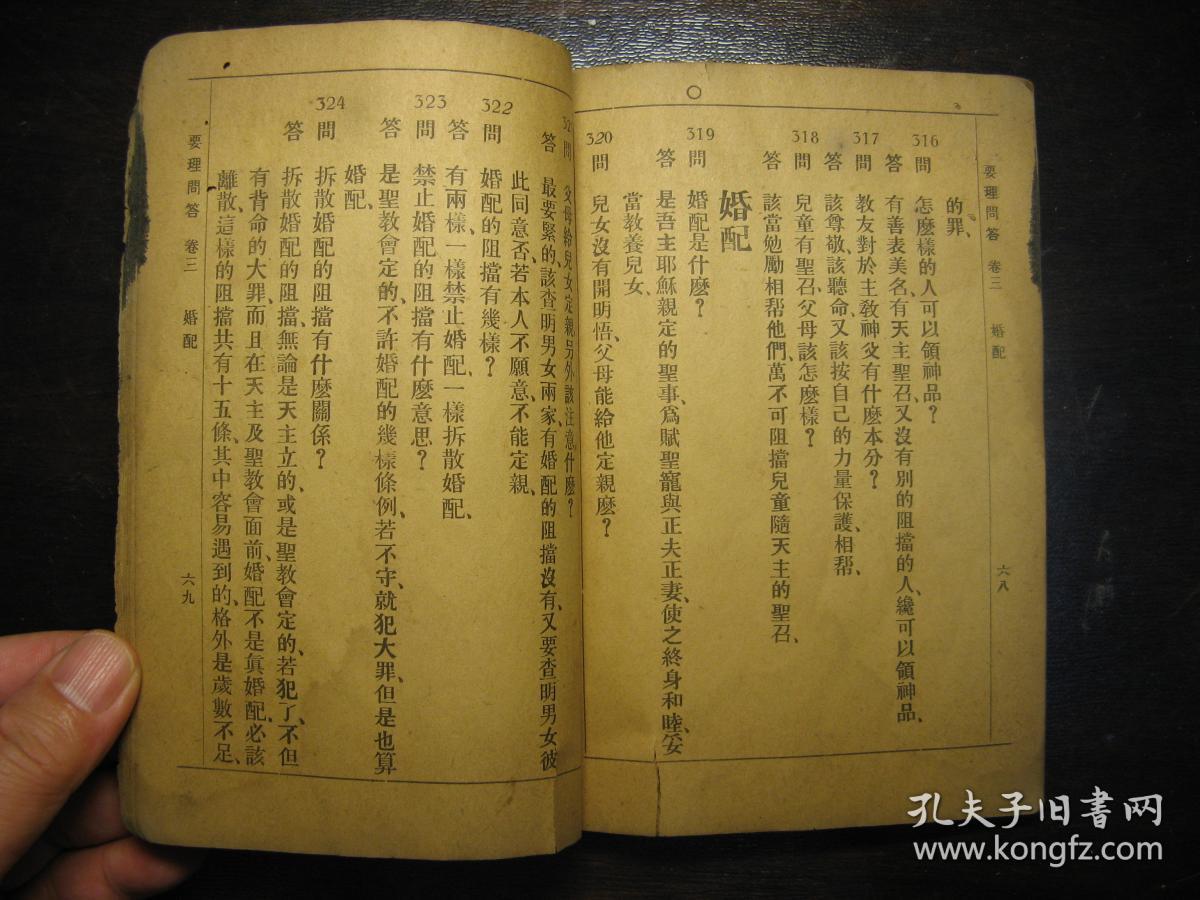 要理問答 卷三 婚配 六八
的罪、
316 問 怎麽樣的人可以領神品?
答 有善表美名、有天主聖召、又沒有別的阻擋的人、纔可以領神品、
317 問 教友對於主教神父有什麽本分?
答 該尊敬、該聽命、又該按自己的力量保護、相帮、
318 問 兒童有聖召、父母該怎麽樣?
答 該當勉勵相帮他們、萬不可阻擋兒童隨天主的聖召、
婚配
319 問 婚配是什麽?
答 是吾主耶穌親定的聖事、爲賦聖寵與正夫正妻、使之終身和睦、妥
當教養兒女、
320 問 兒女沒有開明悟、父母能給他定親麽?
問 父母給兒女定親、另外該注意什麽?
答 最要緊的、該查明男女兩家、有婚配的阻擋沒有、又要查明男女彼
此同意否、若本人不願意、不能定親、
322 問 婚配的阻擋有幾樣?
答 有兩樣、一樣禁止婚配、一樣拆散婚配、
323 問 禁止婚配的阻擋有什麽意思?
答 是聖教會定的、不許婚配的幾樣條例、若不守、就犯大罪、但是也算
婚配、
324 問 拆散婚配的阻擋有什麽關係?
答 拆散婚配的阻擋、無論是天主立的、或是聖教會定的、若犯了、不但
有背命的大罪、而且在天主及聖教會面前、婚配不是眞婚配、必該
離散、這樣的阻擋共有十五條、其中容易遇到的、格外是歲數不足、
要理問答 卷三 婚配 六九
孔夫子旧书网
www.kongfz.com